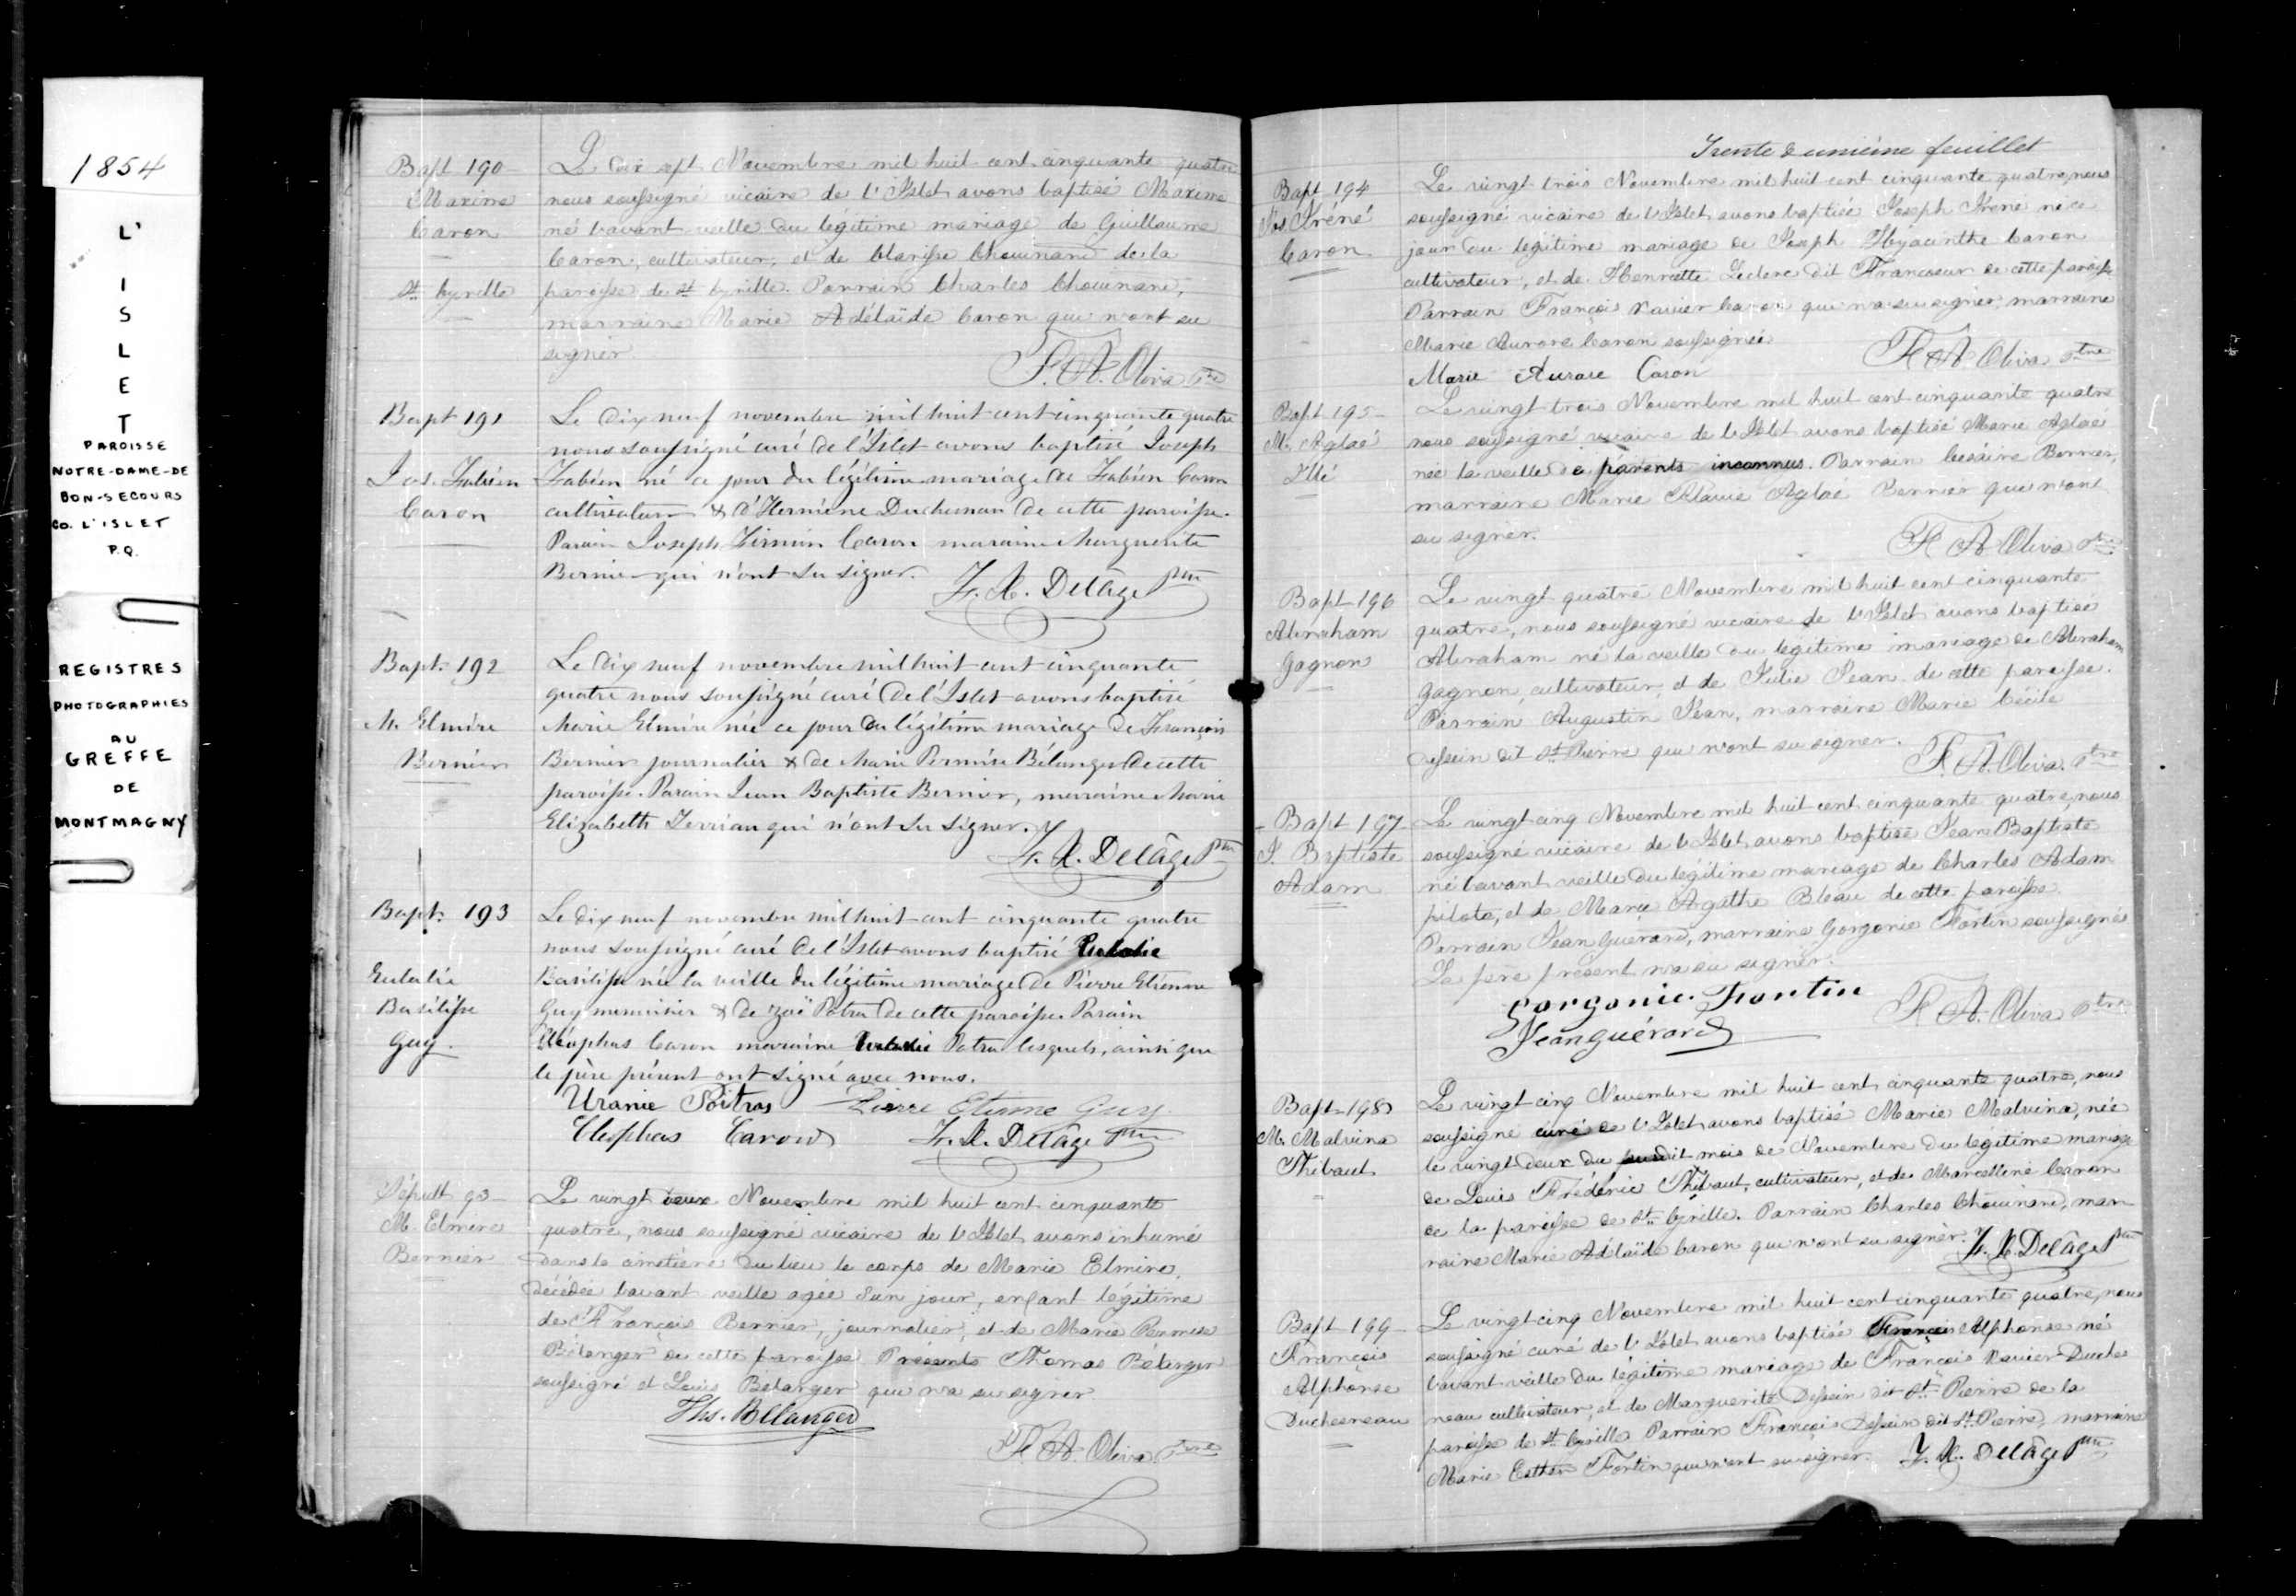 1854
L'
I
S
L
E
T
PAROISSE
NOTRE-DAME-DE
BON-SECOURS
CO. L'ISLET
P.Q.
REGISTRES
PHOTOGRAPHIES
AU
GREFFE
DE
MONTMAGNY
Bapt 190
Maxime
Caron
St. Cyrille
Le dix sept Novembre mil huit cent cinquante quatre
nous soussigné vicaire de l'Islet avons baptisé Maxime
né l'avant veille du légitime mariage de Guillaume
Caron, cultivateur, et de Clarisse Chouinard de la
paroisse de St Cyrille. Parrain Charles Chouinard,
marraine Marie Adélaïde Caron qui n'ont su
signer.
F. A. Oliva Ptre
Bapt 191
Jos. Fabien
Caron
Le dix neuf novembre mil huit cent cinquante quatre
nous soussigné curé de l'Islet avons baptisé Joseph
Fabien né ce jour du légitime mariage de Fabien Caron
cultivateur & d'Hermine Duchesneau de cette paroisse.
Parain Joseph Firmin Caron maraine Marguerite
Bernier qui n'ont su signer.
F. X. Delâge Ptre
Bapt. 192
M. Elmire
Bernier
Le dix neuf novembre mil huit cent cinquante
quatre nous soussigné curé de l'Islet avons baptisé
Marie Elmire née ce jour du légitime mariage de François
Bernier journalier & de Marie Permise Bélanger de cette
paroisse. Parain Jean Baptiste Bernier, marraine Marie
Elizabeth Terrian qui n'ont su signer.
F. X. Delâge Ptre
Bapt. 193
Eulalie
Basilisse
Guy.
Le dix neuf novembre mil huit cent cinquante quatre
nous soussigné curé de l'Islet avons baptisé Eulalie
Basilisse née la veille du légitime mariage de Pierre Etienne
Guy menuisier & de Zoé Potra de cette paroisse. Parain
Cléophas Caron maraine Potra lesquels, ainsi que
le père présent ont signé avec nous.
Uranie Poitras Pierre Etienne Guy
Cleophas Caron F. X. Delâge Ptre
Sépult 93
M. Elmire
Bernier
Le vingt deux Novembre mil huit cent cinquante
quatre, nous soussigné vicaire de l'Islet avons inhumé
dans le cimetière du lieu le corps de Marie Elmire,
décédée l'avant veille agée d'un jour, enfant légitime
de François Bernier, journalier, et de Marie Permise
Bélanger de cette paroisse. Présents Thomas Bélanger
soussigné et Louis Bélanger qui n'a su signer
Ths. Bélanger
F. A. Oliva Ptre
Trente deunième feuillet
Bapt 194
Jos. Iréné
Caron
Le vingt trois Novembre mil huit cent cinquante quatre, nous
soussigné vicaire de l'Islet avons baptisé Joseph Irené né ce
jour du légitime mariage de Joseph Hyacinthe Caron
cultivateur, et de Henriette Leclerc dit Francoeur de cette paroisse
Parrain François Xavier Caron qui n'a su signer, marraine
Marie Aurore Caron soussignée.
F. A. Oliva Ptre
Marie Aurore Caron
Bapt 195
M. Aglaé
Illé
Le vingt trois Novembre mil huit cent cinquante quatre
nous soussigné vicaire de l'Islet avons baptisé Marie Aglaé
née la veille de parents inconnus. Parrain Césaire Bernier,
marraine Marie Aglaé Bernier qui n'ont
su signer.
F. A. Oliva Ptre
Bapt 196
Abraham
Gagnon
Le vingt quatre Novembre mil huit cent cinquante
quatre, nous soussigné vicaire de l'Islet avons baptisé
Abraham né la veille du légitime mariage de Abraham
Gagnon, cultivateur, et de Julie Jean de cette paroisse.
Parrain Augustin Jean, marraine Marie Cécile
Dessein dit St Pierre qui n'ont su signer.
F. A. Oliva Ptre
Bapt 197
J. Baptiste
Adam
Le vingt cinq Novembre mil huit cent cinquante quatre, nous
soussigné vicaire de l'Islet avons baptisé Jean Baptiste
né l'avant veille du légitime mariage de Charles Adam
pilote, et de Marie Agathe Bleau de cette paroisse.
Parrain Jean Guérard, marraine Gorgonie Fortin soussignés
Le père présent n'a su signer.
Gorgonie Fortin
F. A. Oliva Ptre
Jean guérard
Bapt 198
M. Malvina
Thibaut
Le vingt cinq Novembre mil huit cent cinquante quatre, nous
soussigné curé de l'Islet avons baptisé Marie Malvina, née
le vingt deux du susdit mois de Novembre du légitime mariage
de Louis Frédéric Thibaut, cultivateur, et de Marcelline Caron
de la paroisse de St. Cyrille. Parrain Charles Chouinard, mar-
raine Marie Adélaïde Caron qui n'ont su signer.
F. X. Delâge Ptre
Bapt 199
François
Alphonse
Duchesneau
Le vingt cinq Novembre mil huit cent cinquante quatre, nous
soussigné curé de l'Islet avons baptisé François Alphonse né
l'avant veille du légitime mariage de François Xavier Duches
neau cultivateur, et de Marguerite Dessein dit St Pierre de la
paroisse de St Cyrille. Parrain François Dessein dit St Pierre, marraine
Marie Esther Fortin qui n'ont su signer. F. X. Delâge Ptre